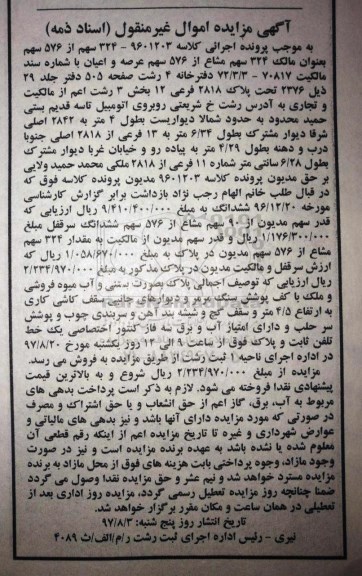 آگهی مزایده اموال غیرمنقول (اسناد ذمه)
به موجب پرونده اجرائی کلاسه ۹۶۰۱۲۰۳ - ۳۲۴ سهم از ۵۷۶ سهم
بعنوان مالک ۳۲۴ سهم مشاع از ۵۷۶ سهم عرصه و اعیان با شماره سند
مالکیت ۷۰۸۱۷ - ۷۲/۳/۳ دفترخانه ۴ رشت صفحه ۵۰۵ دفتر جلد ۲۹
ذیل ۲۳۷۶ تحت پلاک ۲۸۱۸ فرعی ۱۲ بخش ۳ رشت اعم از مالکیت
و تجاری به آدرس رشت خ شریعتی روبروی اتومبیل تاسه قدیم پستی
حمید محدود به حدود شمالا دیواریست بطول ۴ متر به ۲۸۴۲ اصلی
شرقا دیوار مشترک بطول ۶/۳۴ متر به ۱۳ فرعی از ۲۸۱۸ اصلی جنوبا
درب و دهنه بطول ۴/۲۹ متر به پیاده رو و خیابان غربا دیوار مشترک
بطول ۶/۲۸ سانتی متر شماره ۱۱ فرعی از ۲۸۱۸ ملکی محمد حمید ولایی
بر حق مدیون پرونده کلاسه ۹۶۰۱۲۰۳ مدیون پرونده کلاسه فوق که
در قبال طلب خانم الهام رجب نژاد بازداشت برابر گزارش کارشناسی
مورخه ۹۶/۱۲/۲۰ ششدانگ به مبلغ ۹/۴۱۰/۴۰۰/۰۰۰ ریال ارزیابی که
قدر سهم مدیون از سهم مشاع از ۵۷۶ سهم ششدانگ سرقفل مبلغ
۱/۱۷۶/۳۰۰/۰۰۰ ریال و قدر سهم مدیون از مالکیت به مقدار ۳۲۴ سهم
مشاع از ۵۷۶ سهم مدیون در پلاک به مبلغ ۱/۰۵۸/۶۷۰/۰۰۰ ریال که
ارزش سرقفل و مالکیت مدیون در پلاک مذکور به مبلغ ۲/۲۳۴/۹۷۰/۰۰۰
ریال ارزیابی که توصیف اجمالی پلاک بصورت بستنی و آب میوه فروشی
و ملک با کف پوشش سنگ مرمر و دیوارهای جانبی سقف کاشی کاری
به ارتفاع ۴/۵ متر و سقف گچ و شیشه بند آهن و سربندی چوب و پوشش
سر حلب و دارای امتیاز آب و برق سه فاز کنتور اختصاصی یک خط
تلفن ثابت و پلاک فوق از ساعت ۹ الی ۱۲ روز یکشنبه مورخ ۹۷/۸/۲۰
در اداره اجرای ناحیه ۱ ثبت رشت از طریق مزایده به فروش می رسد.
مزایده از مبلغ ۲/۲۳۴/۹۷۰/۰۰۰ ریال شروع و به بالاترین قیمت
پیشنهادی نقدا فروخته می شود. لازم به ذکر است پرداخت بدهی های
مربوط به آب، برق، گاز اعم از حق انشعاب و یا حق اشتراک و مصرف
در صورتی که مورد مزایده دارای آنها باشد و نیز بدهی های مالیاتی و
عوارض شهرداری و غیره تا تاریخ مزایده اعم از اینکه رقم قطعی آن
معلوم شده یا نشده باشد به عهده برنده مزایده است و نیز در صورت
وجود مازاد، وجوه پرداختی بابت هزینه های فوق از محل مازاد به برنده
مزایده مسترد خواهد شد و نیم عشر و حق مزایده نقدا وصول می گردد
ضمنا چنانچه روز مزایده تعطیل رسمی گردد، مزایده روز اداری بعد از
تعطیلی در همان ساعت و مکان مقرر برگزار خواهد شد.
تاریخ انتشار روز پنج شنبه: ۹۷/۸/۳
نیری - رئیس اداره اجرای ثبت رشت ر/م/الف/ث ۴۰۸۹